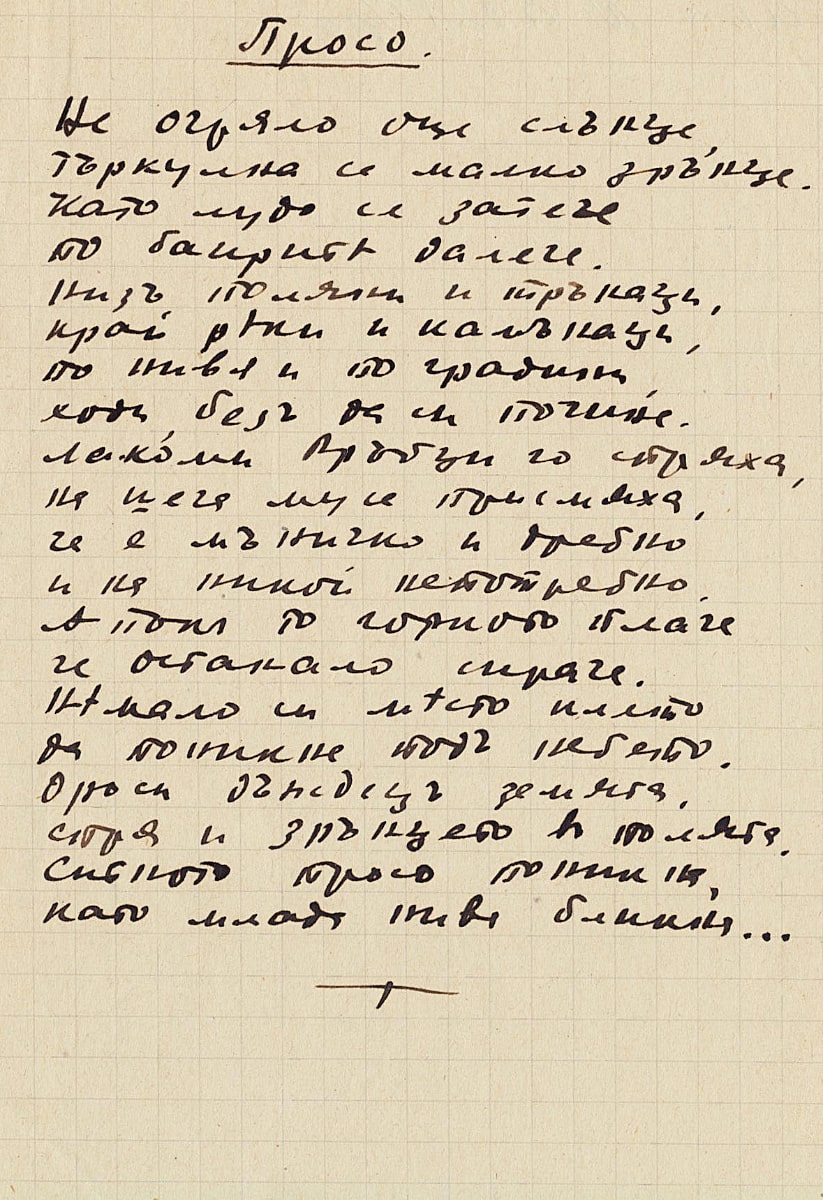 Просо.
Не огряло още слънце,
търкулна се малко зрънце.
Като лудо се затече
по баиритѣ далече.
низъ поляни и тръкаци,
край рѣки и камъкаци,
по нивя и по градини,
ходи, безъ да си почине.
лакоми врѣбци го стряха,
на шега му се присмяха,
че е мъничко и дребно
и на никой непотребно.
А пъкъ то горкото плаче
че останало сираче.
Нѣмало си мѣсто клето
да поникне подъ небето.
Ороси дъждецъ земята,
спря и зрънцето в полята.
Ситното просо поникна,
като млада нива бликна...